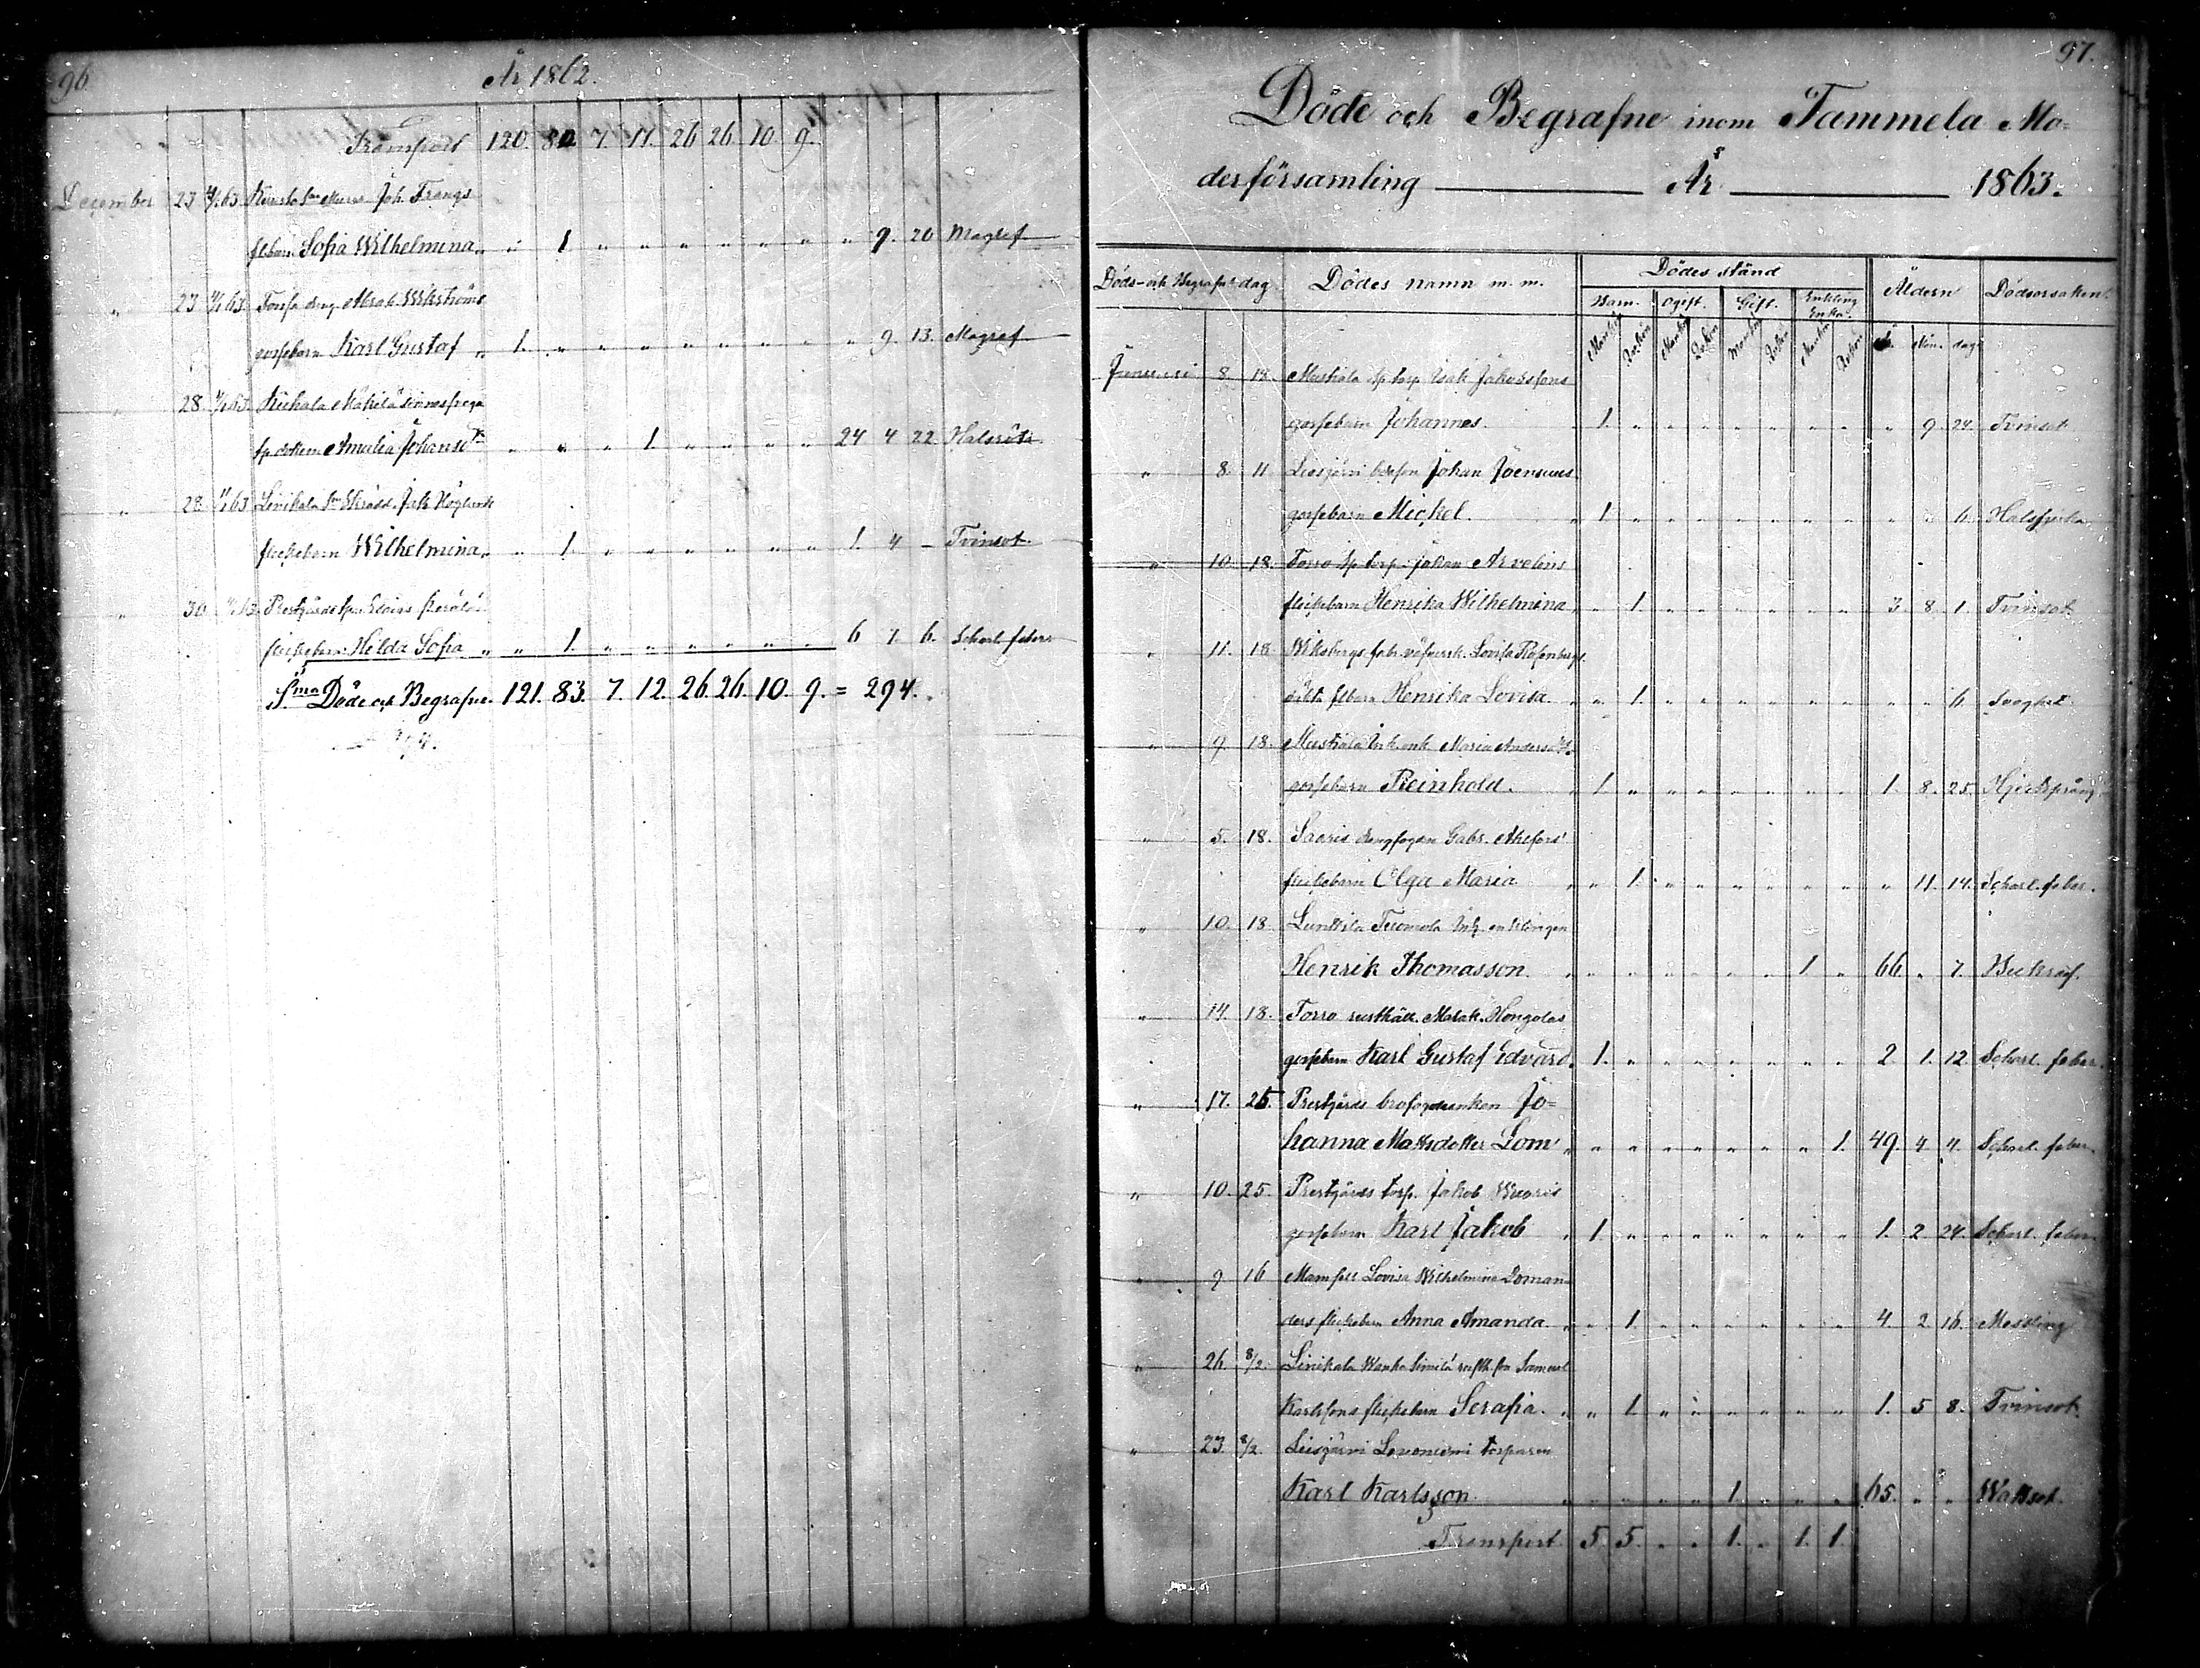 96.
År 1862.
Transport 120. 80. 7. 11. 26 26. 10. 9.
December 23 4/1 63. Joh. Frangs
flbarn Sofia Wilhelmina „ „ 1. „ „ „ „ „ „ „ 9. 20 Magref
„ 23 63. Forssa dreng. Wikströms
gossebarn Karl Gustaf „ 1. „ „ „ „ „ „ „ „ 9. 13. Magref
„ 28. 63. Kuhala Mäkilä
Amalia Johansd:r „ „ „ 1. „ „ „ „ 24 4 22 Halsröta
„ 28. 63. Linikala Höglunds
flickebarn Wilhelmina „ „ 1. „ „ „ „ „ „ 1. 4 – Tvinsot.
„ 30 63. Prestgårds
flickebarn Hilda Sofia „ „ 1. „ „ „ „ „ „ 6 7. 6. Scharl. feber
S:ma Döde och Begrafne. 121. 83. 7. 12. 26. 26. 10. 9. = 294.
97.
Döde och Begrafne inom Tammela Mo=
derförsamling — År — 1863.
Döds- och Begrafn: dag. Dödes namn m. m. Dödes stånd Åldern Dödsorsaken
Barn. Ogift. Gift. Enkling Enka.
Mankön Qvkön Mankön Qvkön Mankön Qvkön Mankön Qvkön År Mån. dag.
Januari 8. 18. Mustiala sp torp. Isak Jakobssons
gossebarn Johannes. 1. „ „ „ „ „ „ „ „ 9. 24. Tvinsot
„ 8. 11 Liesjärvi Johan Joensuus
gossebarn Mickel. „ 1. „ „ „ „ „ „ „ „ „ 6. Halssjuka
„ 10. 18. Torro sp torp. Johan Arvelins
flickebarn Henrika Wilhelmina „ „ 1. „ „ „ „ „ „ 3. 8. 1. Tvinsot
„ 11. 18 Wiksbergs fabr. Lovisa Rosenbergs
oäkt. flbarn Henrika Lovisa. „ „ 1. „ „ „ „ „ „ „ „ 6. Svaghet
„ 9. 18. Mustiala inh. enk. Maria Andersd:rs
gossebarn Reinhold. „ 1. „ „ „ „ „ „ „ 1. 8. 25. Hjertsprång.
„ 5. 18. Saaris drengfogen Gabr. Ahlfors'
flickebarn Olga Maria „ „ 1. „ „ „ „ „ „ „ 11. 14. Scharl. feber.
„ 10. 18 Lunkila Tuomola inh. enklingen
Henrik Thomasson. „ „ „ „ „ „ „ 1. „ 66. „ 7.
„ 14. 18. Torro rusthåll. Hongolas
gossebarn Karl Gustaf Edvard. 1. „ „ „ „ „ „ „ 2. 1. 12. Scharl. feber.
„ 17. 25. Prestgårds Jo=
hanna Mattsdotter Lom „ „ „ „ „ „ „ „ 1. 49. 4 4. Scharl. feber.
„ 10. 25. Prestgårds torp. Jakob
gossebarn Karl Jakob „ 1. „ „ „ „ „ „ „ 1. 2. 24. Scharl. feber.
„ 9 16 Mamsell Lovisa Wilhelmina Doman
ders flickebarn Anna Amanda „ „ 1. „ „ „ „ „ „ 4. 2. 16. Messling
„ 26. 8/2. Linikala Samuel
Karlssons flickebarn Serafia. „ „ 1. „ „ „ „ „ „ 1. 5 8. Tvinsot.
„ 23. 8/2. Liesjärvi torparen
Karl Karlsson „ „ „ „ „ 1. „ „ „ 65. „ „ Wattsot.
Transport 5. 5. „ „ 1. „ 1. 1.